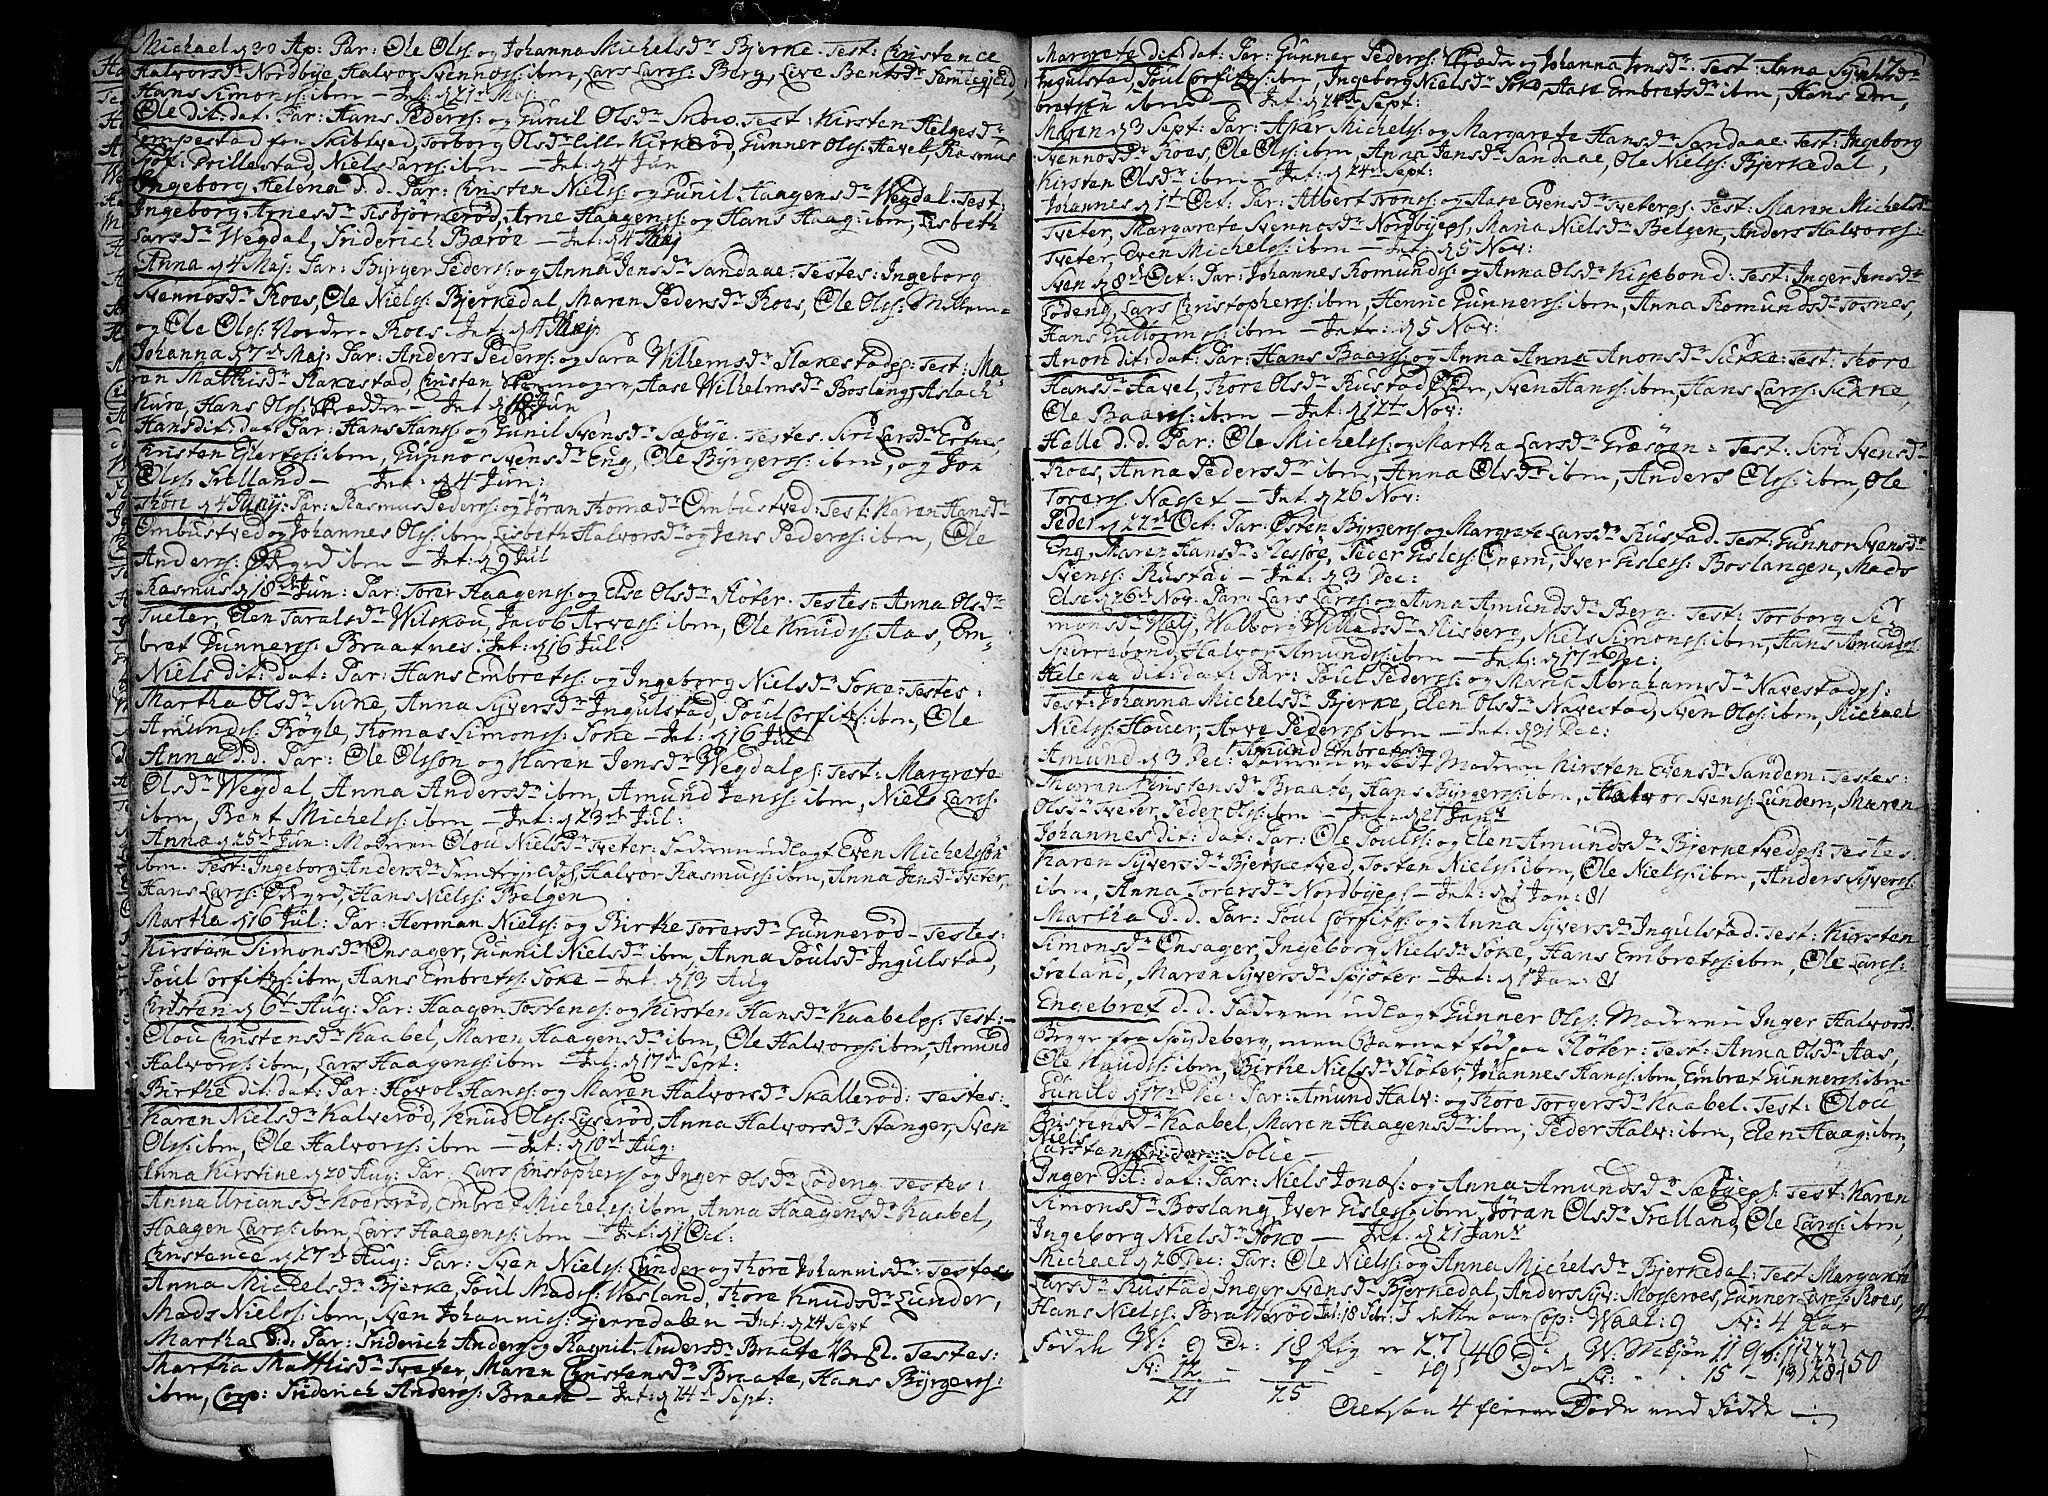 Michael d 30 Ap: Par: Ole Ols: og Johanna Michelsdr Bjerke. Test: Christence
Halvorsdr Nordbye, Halvor Svennoss: ibm, Lars Larss: Berg, Live Bentsdr
Hans Simonss: ibm - Int: d 21 Maj:
Ole dit: dat: Par: Hans Peders: og Gunil Olsdr Test: Kirsten Helgesdr
fra Skibtved, Torborg Olsdr Lille Kirkerød, Gunner Olss: Havel, Rasmus
Prillestad, Niels Larss: ibm - Int: d 4 Jun
Ingeborg Helena d. d. Par: Christen Nielss: og Gunil Haagensdr Wegdal. Test:
Ingeborg Arnesdr Tisbjörnerød, Arne Haagenss: og Hans Haag: ibm, Lisbeth
Larsdr Wegdal, Friderich Bærøe - Int: d 4
Anna d 4 Maj: Par: Byrger Peders: og Anna Jensdr Sandaae: Testes: Ingeborg
Svennosdr Roes, Ole Nielss: Bjerkedal, Maren Pedersdr Roes, Ole Olss:
og Ole Olss: Nordre Roes - Int: d 4
Johanna d 7de Maj: Par: Anders Pederss: og Sara Wilhemsdr Slakestad: Test: Ma
ren Matthisdr Slakestad, Christen Skoemager, Aase Wilhelmsdr Boslang, Aslach
Kure, Hans Olss: Skrædder - Int: Jun
Hans dit: dat: Par: Hans Hanss: og Gunil Svensdr Sæbye. Testes. Siri Larsdr
Christen ibm, Gunnor Svensdr Eng, Ole Byrgerss: ibm, og Jon
Olss: Frelland - Int: d 4 Jun:
Thore d 4 Par: Rasmus Pederss: og Jøran Ombustved: Test: Karen Hansdr
Ombustved og Johannes Olss: ibm, Lisbeth Halvorsdr og Jens Pederss: ibm, Ole
Anderss: ibm - Int: d 9 Jul
Rasmus d 18de Jun: Par: Torer Haagenss: og Else Olsdr Fløter. Testes: Anna Olsdr
Tveter, Elen Taralsdr Wilskou, Jacob Arvess: ibm, Ole Knudss: Aas, Em-
bret Gunnerss: Braatnes: Int: d 16 Jul:
Niels dit: dat: Par: Hans Embretss: og Ingeborg Nielsdr Soke: Testes:
Martha Olsdr Sune, Anna Syversdr Ingulstad, Poul Corfitz: ibm, Ole
Amundss: Bøgle, Thomas Simonss: Soke - Int: d 16 Jul
Anna D.d. Par: Ole Olsson og Karen Jensdr Wegdal: Test: Margrete
Olsdr Wegdal, Anna Andersdr ibm, Amund Jenss: ibm, Niels Larss:
ibm, Bent Michelss: ibm - Int: d 23de Jul:
Anna d 25de Jun: Moderen Olou Nielsdr Tveter: Faderen udlagt Even Michelsson
ibm. Test: Ingeborg Andersdr Halvor Rasmuss: ibm, Anna Jensdr Tveter,
Hans Larss: Hans Nielss: Belgen
Martha d 16 Jul: Par: Herman Nielss: og Birthe Torersdr Gunnerød - Testes:
Kirsten Simonsdr Ensager, Gunnil Nielsdr ibm, Anna Poulsdr Ingulstad,
Poul Corfitz: ibm, Hans Embretss: Soke - Int: d 13 Aug
Christen d 6te Aug: Par: Haagen Tostenss: og Kirsten Hansdr Kaabel: Test:
Olou Christensdr Kaabel, Maren Haagensdr ibm, Ole Halvorss: ibm, Amund
Halvorss: ibm, Lars Haagenss: ibm - Int: d 17de Sept:
Birthe dit: dat: Par: Hovol Hanss: og Maren Halvorsdr Skallerød: Testes:
Karen Nielsdr Kalverød, Knud Olss: Lyserød, Anna Halvorsdr Stanger, Sven
Olss: ibm, Ole Halvorss: ibm - Int: d 10de Aug:
Anna Kirstine d 20 Aug: Par: Lars Christopherss: og Inger Olsdr Lødeng. Testes:
Anna Uriansdr Embret Michelss: ibm, Anna Haagensdr Kaabel,
Haagen Larss: ibm, Lars Haagenss: ibm - Int: d 1 Oct:
Christence d 27de Aug: Par: Sven Nielss: Lunder og Thore Johannisdr: Testes
Anna Michelsdr Bjerke, Poul Madss: Wesland, Thore Knudsdr Lunder,
Mads Nielss: ibm, Sven Johanniss: Gjerredalen - Int: d 24 Sept
Martha D.d: Par: Friderich Anderss: og Ragnil Andersdr Braate Testes:
Martha Matthisdr Tveter, Maren Christensdr Braate, Hans Byrgerss:
ibm, Corp: Friderich Anderss: Braate - Int: d 24de Sept:
Margrete dit: dat: Par: Gunner Pederss: Skræder og Johanna Jonsdr: Test: Anna
Ingulstad, Poul Corfitz: ibm, Ingeborg Nielsdr Soke, Aase Embretsdr ibm, Hans Em-
bretssen ibmd - Int: d 24de Sept:
Maren d 3 Sept: Par: Asker Michelss: og Margarete Hansdr Sandaae. Test: Ingeborg
Svennosdr Roes, Ole Olss: ibm, Anna Jensdr Sandaae, Ole Nielss: Bjerkedal,
Kirsten Olsdr ibm - Int: d 24de Sept:
Johannes d 1st Oct: Par: Albert Tronss: og Aase Evensdr Tveter: Test: Maren Michelsdr
Tveter, Margarete Svennosdr Nordbye, Maria Nielsdr Belgen, Anders Halvorss:
Tveter, Even Michelss: ibm - Int: d 5 Nov:
Sven d 8de Oct: Par: Johannes Romundss: og Anna Olsdr Kisebond: Test: Inger Jensdr
Lødeng, Lars Christopherss: ibm, Henric Gunnerss: ibm, Anna Romundsdr Tosnes,
Hans Guttorms: ibm - Int: d 5 Nov:
Anon dit: dat: Par: Hans Baarss: og Anna Anna Anonsdr Sikke: Test: Thore
Hansdr Havel, Thore Olsdr Rustad, Sven Hanss: ibm, Hans Larss: Sikke,
Ole Baarss: ibm - Int: d 12te Nov:
Halle d. d. Par: Ole Michelss: og Martha Larsdr Græsøen = Test: Siri Svensdr
Roes, Anna Pedersdr ibm, Anna Olsdr ibm, Anders Olss: ibm, Ole
Torerss: Næsset - Int: d 26 Nov:
Peder d 22de Oct: Par: Østen Byrgerss: og Margrete Larsdr Rustad. Test: Gunnor Svensdr
Eng, Maren Hansdr Flesjøe, Peder Gisless: Krem, Iver Gisless: Boslangen, Mads
Svenss: Rustad - Int: d 3 Dec:
Else d 26de Nov: Par: Lars Larss: og Anna Amundsdr Berg. Test: Torborg Si-
monsdr Walborg Willadsdr Flisberg, Niels Simonss: ibm, Hans Amundss:
Halvor Amundss: ibm - Int: d 17de Dec:
Helena dit: dat: Par: Poul Pederss: og Maria Abrahamsdr Navestad:
Test: Johanna Michelsdr Bjerke, Elen Olsdr Navestad, Sven Olss: ibm, Michael
Nielss: Houer, Arve Pederss: ibm - Int: d 31 Dec:
Amund d 3 Dec: Faderen er død Amund Embretss: Moderen Kirsten Evensdr Sandem: Testes:
Maren Christensdr Braate, Hans Byrgerss: ibm, Halvor Svenss: Lundem, Maren
Olsdr Tveter, Peder Olss: ibm - Int: d 21 Janr
Johannes dit: dat: Par: Ole Poulss: og Elen Amundsdr Bjerketved: Testes:
Karen Syversdr Bjerketved, Tosten Nielss: ibm, Ole Nielss: ibm, Anders Syverss:
ibm, Anna Torersdr Nordbye - Int: d 1 Jan: 81
Martha D. d. Par: Poul Corfitz: og Anna Syversdr Ingulstad. Test: Kirsten
Simonsdr Ensager, Ingeborg Nielsdr Soke, Hans Embretss: ibm, Ole Larss:
Freland, Maren Syversdr Spjøter - Int: d 1 Jan: 81
Engebret d. d. Faderen udlagt Gunner Olss: Moderen Inger Halvorsd
Bygge fra Spydeberg, men Barnet fød paa Fløter: Test: Anna Olsdr Aas,
Ole Knudss: ibm, Birthe Nielsdr Fløter, Johannes Hanss: ibm, Embret Gunnerss: ibm
Gunild d 17de Dec: Par: Amund Halv: og Thore Torgersdr Kaabel. Test: Olou
Christensdr Kaabel, Maren Haagensdr ibm, Peder Halv: ibm, Elen Haag: ibm,
Niels
Carsten Solie -
Inger Dit: dat: Par: Niels Jonæs: og Anna Amundsdr Sæbye: Test: Karen
Simonsdr Boslang, Iver Gisless: ibm, Jøran Olsdr Frelland, Ole Larss: ibm,
Ingeborg Nielsdr Soke - Int: d 21 Janr
Michael d 26 Dec: Par: Ole Nielss: og Anna Michelsdr Bjerkedal: Test Margarete
Larsdr Rustad, Inger Svensdr Bjerkedal, Anders Syv: Moseroes, Gunner Larss: Roes,
Hans Nielss: Bratterød Int: 18 Febr: I dette aar Cop: Waal: 9 Sp: 4 Par
Fødde W: 9 Dr: 18 Pig er 27 46 Døde W. Mkjøn 11 Qv: 11 22
12 7 - 19 - - 15 - 13 28 50
21 25
Altsaa 4 fleere Døde end Fødde